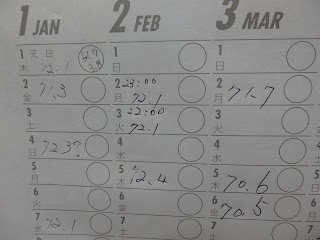 1 JAN 2 FEB 3 MAR
1 元日 木 72.1
1 日
1 日
2 金 71.3
2 月 23:00 72.1
2 月 71.7
3 土
3 火 22:00 72.1
3 火
4 日 723?
4 水
4 水
5 月
5 木 72.4
5 木 70.6
6 火
6 金
6 金 70.5
7 水 72.1
7 土
7 土